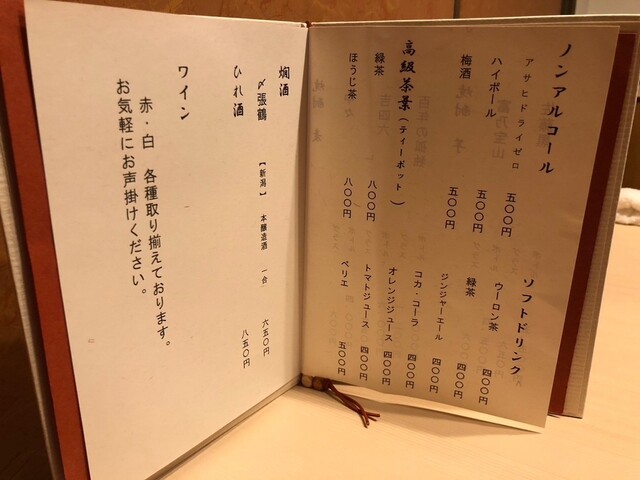 ノンアルコール
アサヒドライゼロ 五〇〇円
ハイボール 五〇〇円
梅酒 五〇〇円
高級茶葉(ティーポット)
緑茶 八〇〇円
ほうじ茶 八〇〇円
ソフトドリンク
ウーロン茶 四〇〇円
緑茶 四〇〇円
ジンジャーエール 四〇〇円
コカ・コーラ 四〇〇円
オレンジジュース 四〇〇円
トマトジュース 四〇〇円
ペリエ 五〇〇円
燗酒
〆張鶴 【新潟】 本醸造酒 一合 六五〇円
ひれ酒 八五〇円
ワイン
赤・白 各種取り揃えております。
お気軽にお声掛けください。